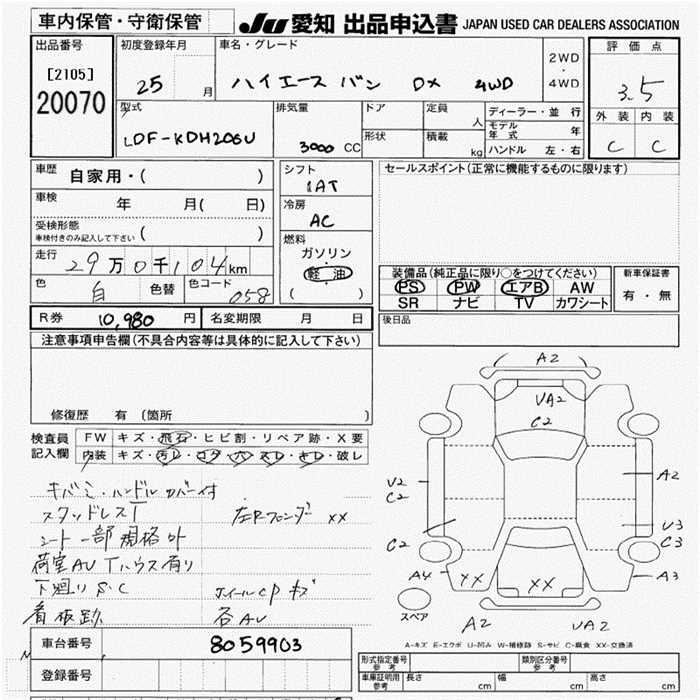 車内保管・守衛保管
JU 愛知 出品申込書 JAPAN USED CAR DEALERS ASSOCIATION
出品番号
[2105]
20070
初度登録年月
25 月
車名・グレード
ハイエース バン DX 4WD
2WD
・
4WD
評価点
3.5
外装 内装
C C
型式
LDF-KDH206V
排気量
3000 CC
ドア
形状
定員 人
積載 kg
ディーラー・並行
モデル年式 年
ハンドル 左・右
車歴
自家用・( )
車検 年 月( 日)
受検形態
車検付きのみ記入して下さい ( )
走行
29万0千104km
色 自 色替 色コード 058
シフト
IAT
冷房
AC
燃料
ガソリン
軽油
( )
セールスポイント(正常に機能するものに限ります)
装備品(純正品に限り○をつけてください)
PS PW エアB AW
SR ナビ TV カワシート
新車保証書
有・無
R券 10,980 円 名変期限 月 日
後日品
注意事項申告欄(不具合内容等は具体的に記入して下さい)
修復歴 有 (箇所 )
検査員
記入欄
FW キズ・飛石・ヒビ割・リペア跡・X要
内装 キズ・汚レ・コゲ・穴・スレ・キレ・破レ
キバミ・ハンドルカバー付
スタッドレスT
左Rフェンダー XX
シート一部規格外
荷室AU Tハウス有り
下廻りS・C
ホイールCPキズ
看板跡
各AU
A2
UA2
C2
U2
C2
A2
U3
C2
C3
A4
XX
XX
A3
スペア
A2
UA2
A-キズ E-エクボ U-凹み W-補修跡 S-サビ C-腐食 XX-交換済
車台番号 8059903
登録番号
形式指定番号
参考
類別区分番号
参考
車庫証明用
参考
長さ cm 幅 cm 高さ cm